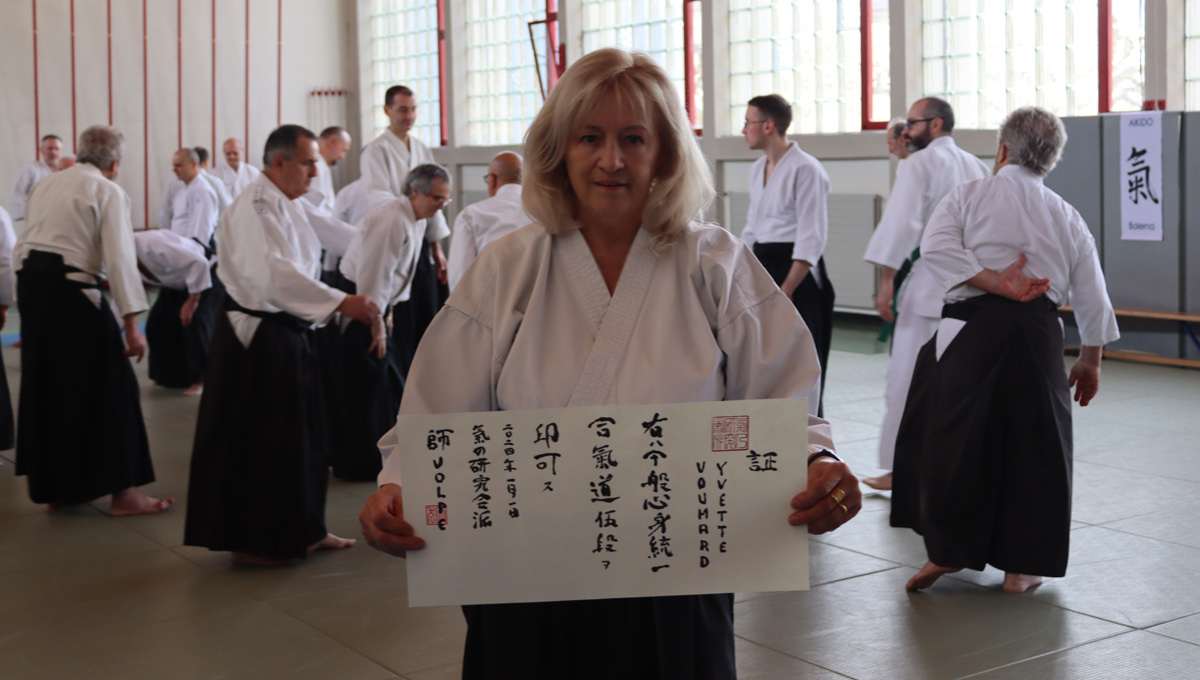 証
YVETTE
VOUMARD
右八今般心身統一
合氣道伍段ヲ
印可ス
二〇二四年一月一日
氣の研究会派
師 VOLPE
AIKIDO
氣
Balerna